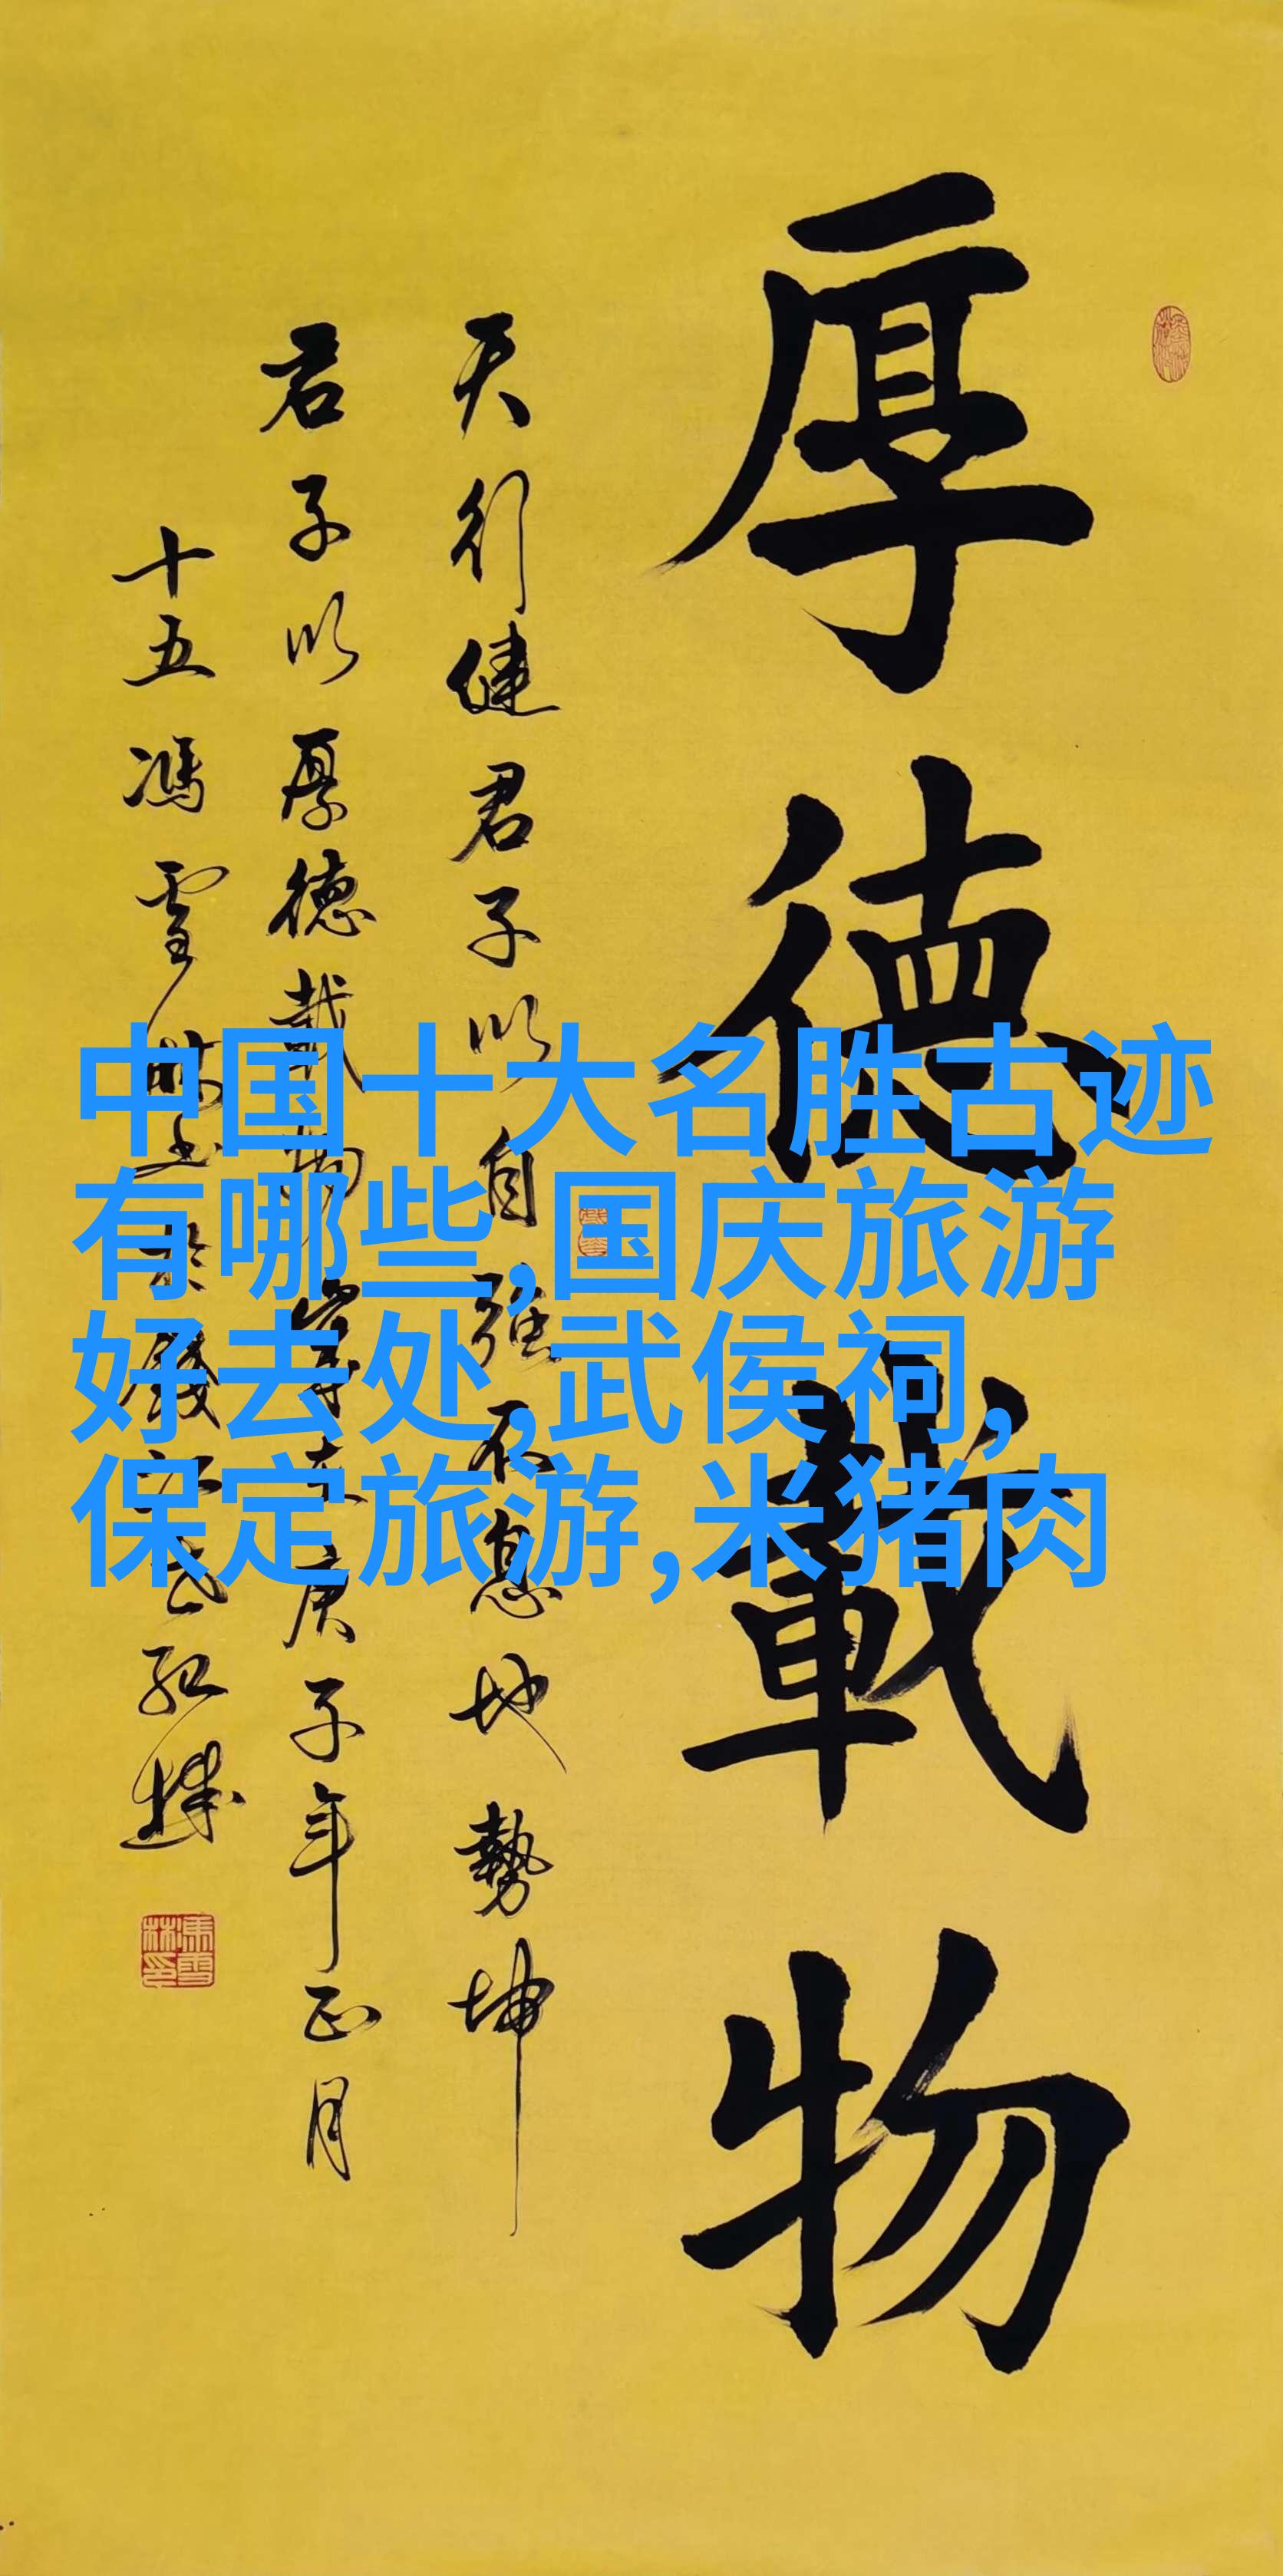 厚德載物
天行健君子以自强不息地勢坤
君子以厚德載物 歲在庚子年正月
十五馮雪林書於
中国十大名胜古迹
有哪些,国庆旅游
好去处,武侯祠,
保定旅游,米猪肉
馮雪林印